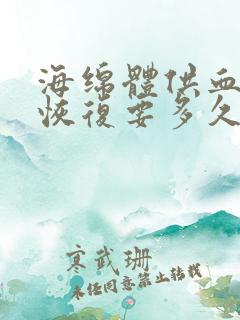 海绵體供血
恢復要多久
寒武珊
未经同意禁止转载